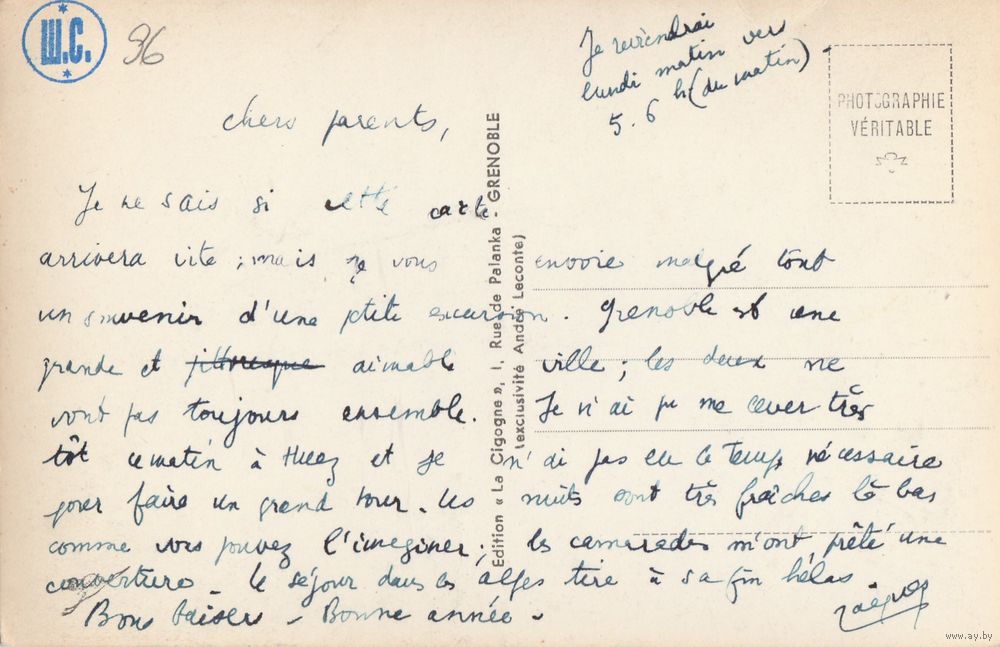 Ш.С.
96
Je reviendrai
lundi matin vers
5.6 h (du matin)
PHOTOGRAPHIE
VÉRITABLE
chers parents,
Je ne sais si cette carte
arrivera vite ; mais je vous envoie malgré tout
un souvenir d'une ptite excursion. Grenoble est une
grande et pittoresque aimable ville ; les deux ne
vont pas toujours ensemble. Je n'ai pu me lever très
tôt ce matin à Huez et je n'ai pas eu le temps nécessaire
pour faire un grand tour. Les nuits sont très fraîches là bas
comme vous pouvez l'imaginer ; les camarades m'ont prêté une
couverture. Le séjour dans les alpes tire à sa fin hélas.
Bons baisers - Bonne année.
Edition « La Cigogne », 1, Rue de Palanka - GRENOBLE
(exclusivité André Leconte)
www.ay.by